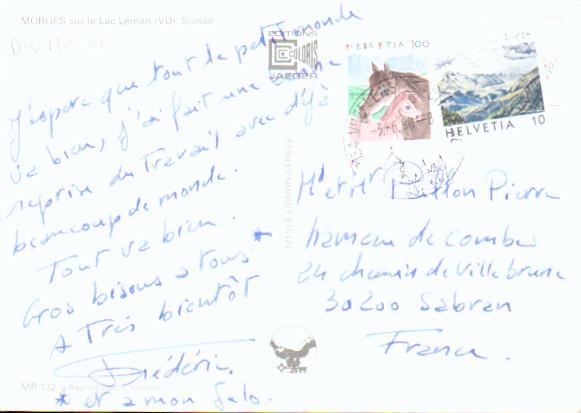 MORGES sur le Lac Léman (VD), Suisse
J'espère que tout le petit monde
va bien, j'ai fait une bonne
reprise du travail avec déjà
beaucoup de monde.
Tout va bien.
Gros bisous a tous *
A Très bientôt
Frédéric
* et a mon Julo.
MR 132
EDITIONS
COLORIS
JAEGER
1211 LE LIGNON GENÈVE
HELVETIA 100
HELVETIA 10
Pierre
hameau de combes
24 chemin de Villebrune
30200 Sabran
France.